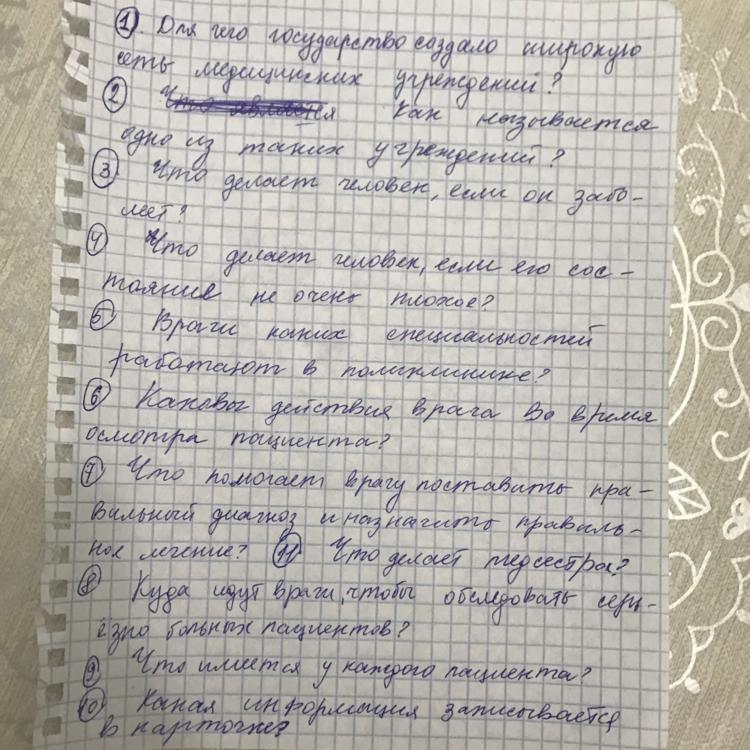 1. Для чего государство создало широкую
сеть медицинских учреждений?
2 Как называется
одно из таких учреждений?
3 Что делает человек, если он забо-
леет?
4 Что делает человек, если его сос-
тояние не очень плохое?
5 Врачи каких специальностей
работают в поликлинике?
6 Каковы действия врача во время
осмотра пациента?
7 Что помогает врачу поставить пра-
вильный диагноз и назначить правиль-
ное лечение? 11 Что делает медсестра?
8 Куда идут врачи, чтобы обследовать серь-
ёзно больных пациентов?
9 Что имеется у каждого пациента?
10 Какая информация записывается
в карточке?